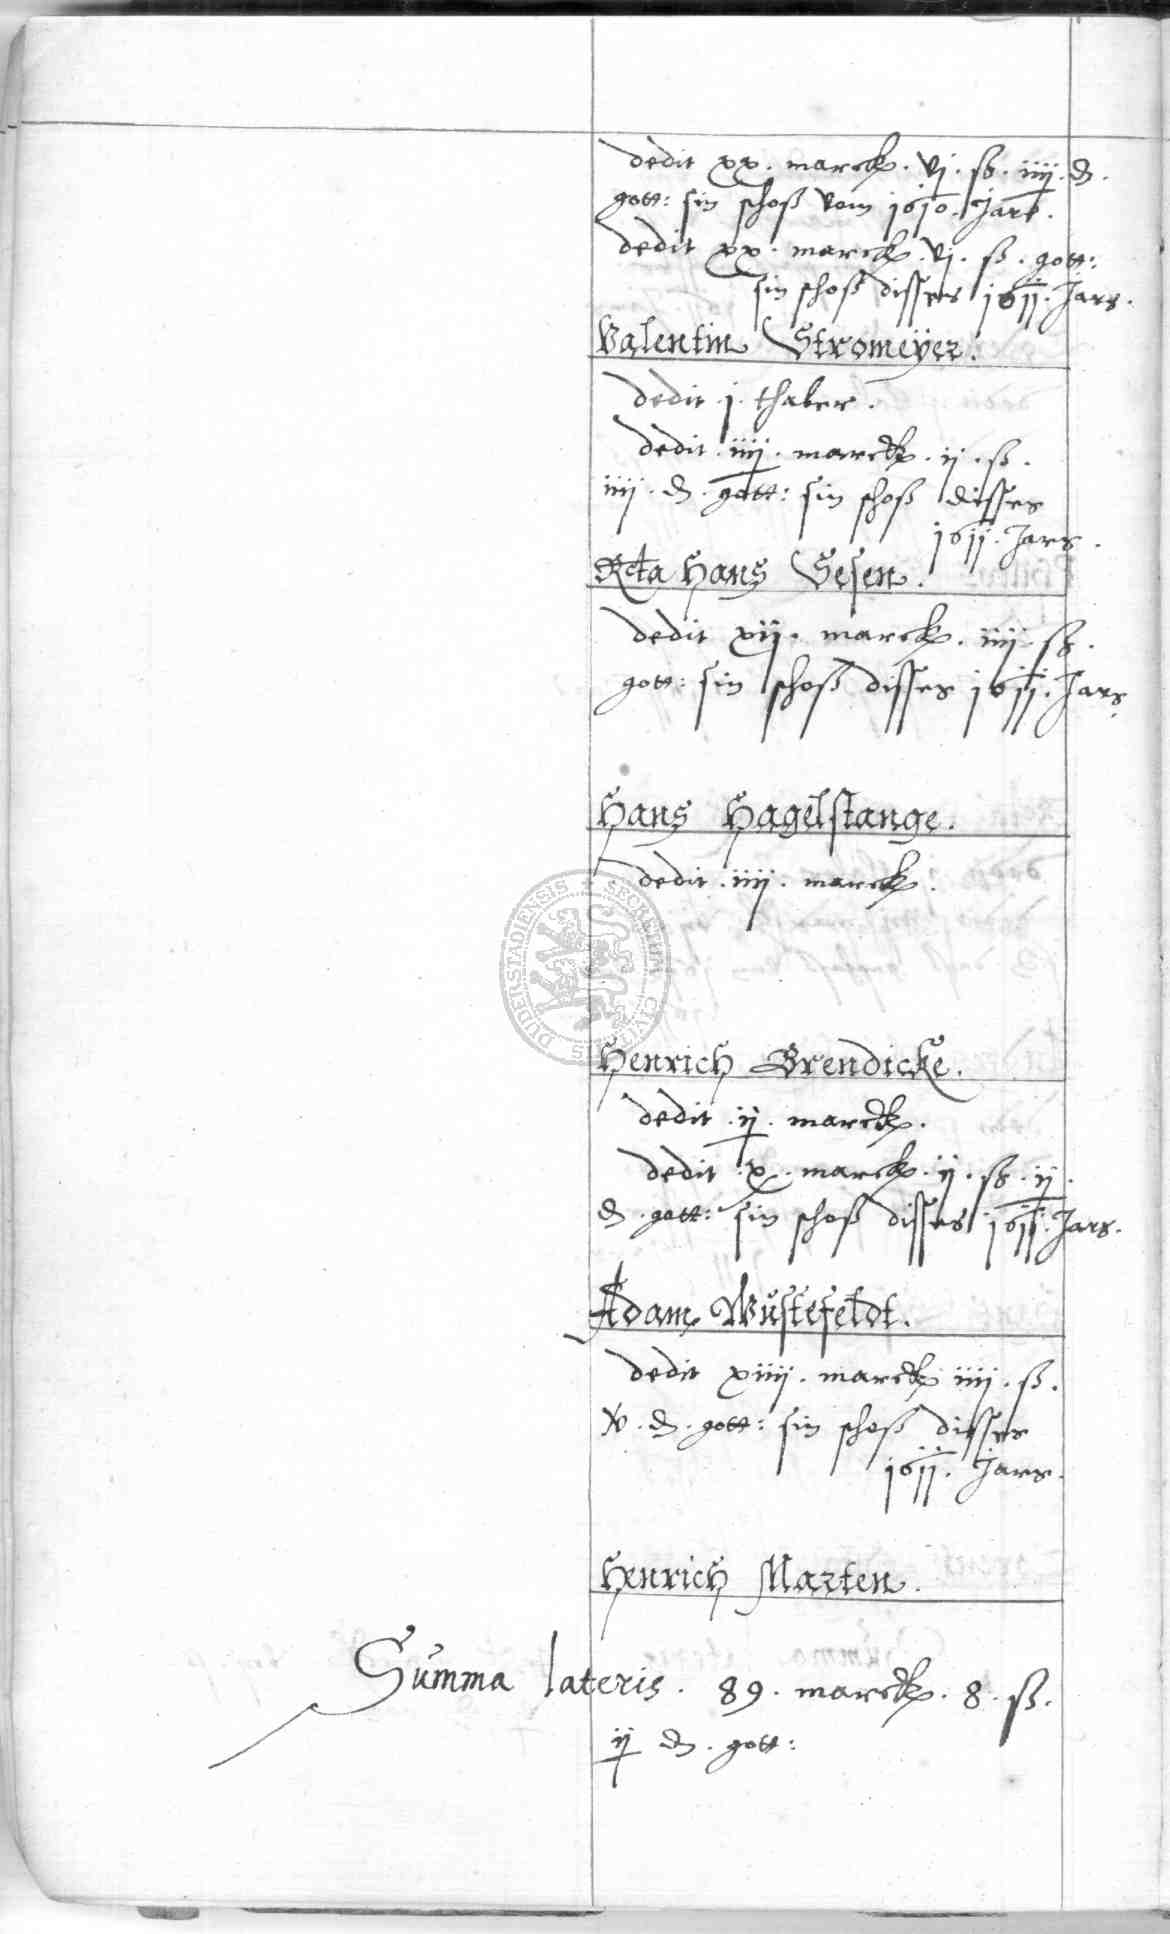 dedit xx. marck. vj. ß. iiij. ₰.
gott: sin schoß vom 1610. Jare.
dedit xx. marck. vj. ß. gott:
sin schoß disses 1611. Jars.
Valentin Stromeÿer.
dedit .j. thaler.
dedit .iiij. marck. ij. ß.
iiij. ₰. gott: sin schoß disses
1611. Jars.
Rcta Hans Gesen.
dedit xij. marck. iiij. ß.
gott: sin schoß disses 1611. Jars.
Hans Hagelstange.
dedit .iiij. marck.
Henrich Brendicke.
dedit .ij. marck.
dedit .x. marck. ij. ß. ij.
₰. gott: sin schoß disses 1611. Jars.
Adam Wüstefeldt.
dedit xiiij. marck iiij. ß.
v. ₰. gott: sin schoß disses
1611. Jars.
Henrich Marten.
Summa lateris. 89. marck. 8. ß.
ij ₰. gott:
SECRETUM CIVITATIS DUDERSTADIENSIS